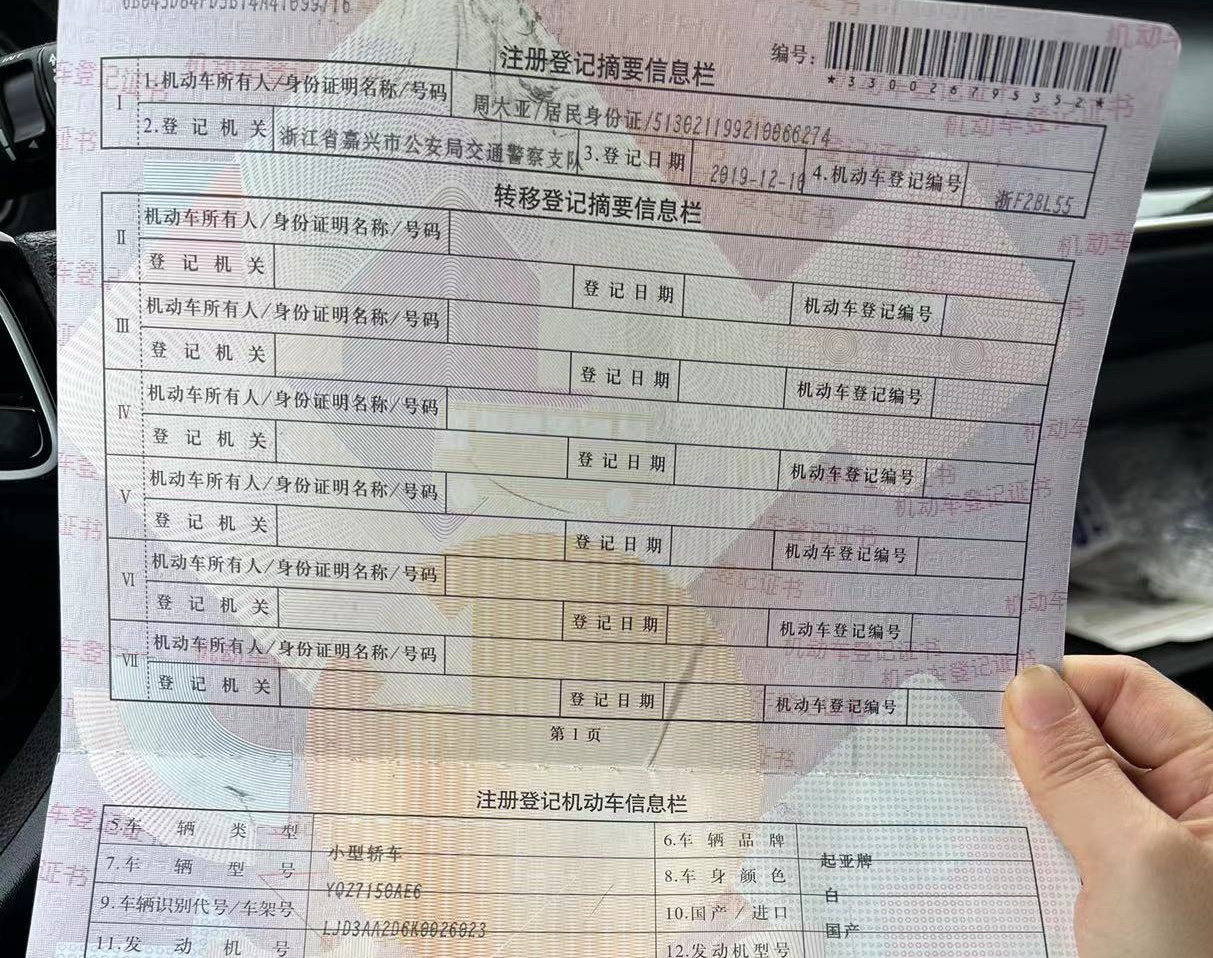 编号:
*330026795352*
注册登记摘要信息栏
I 1.机动车所有人/身份证明名称/号码 周大亚/居民身份证/513021199210066274
2.登记机关 浙江省嘉兴市公安局交通警察支队 3.登记日期 2019-12-16 4.机动车登记编号 浙F2BL55
转移登记摘要信息栏
II 机动车所有人/身份证明名称/号码
登记机关 登记日期 机动车登记编号
III 机动车所有人/身份证明名称/号码
登记机关 登记日期 机动车登记编号
IV 机动车所有人/身份证明名称/号码
登记机关 登记日期 机动车登记编号
V 机动车所有人/身份证明名称/号码
登记机关 登记日期 机动车登记编号
VI 机动车所有人/身份证明名称/号码
登记机关 登记日期 机动车登记编号
VII 机动车所有人/身份证明名称/号码
登记机关 登记日期 机动车登记编号
第1页
注册登记机动车信息栏
5.车辆类型 小型轿车 6.车辆品牌 起亚牌
7.车辆型号 YQZ7150AE6 8.车身颜色 白
9.车辆识别代号/车架号 LJD3AA2D6K0026023 10.国产/进口 国产
11.发动机号 12.发动机型号